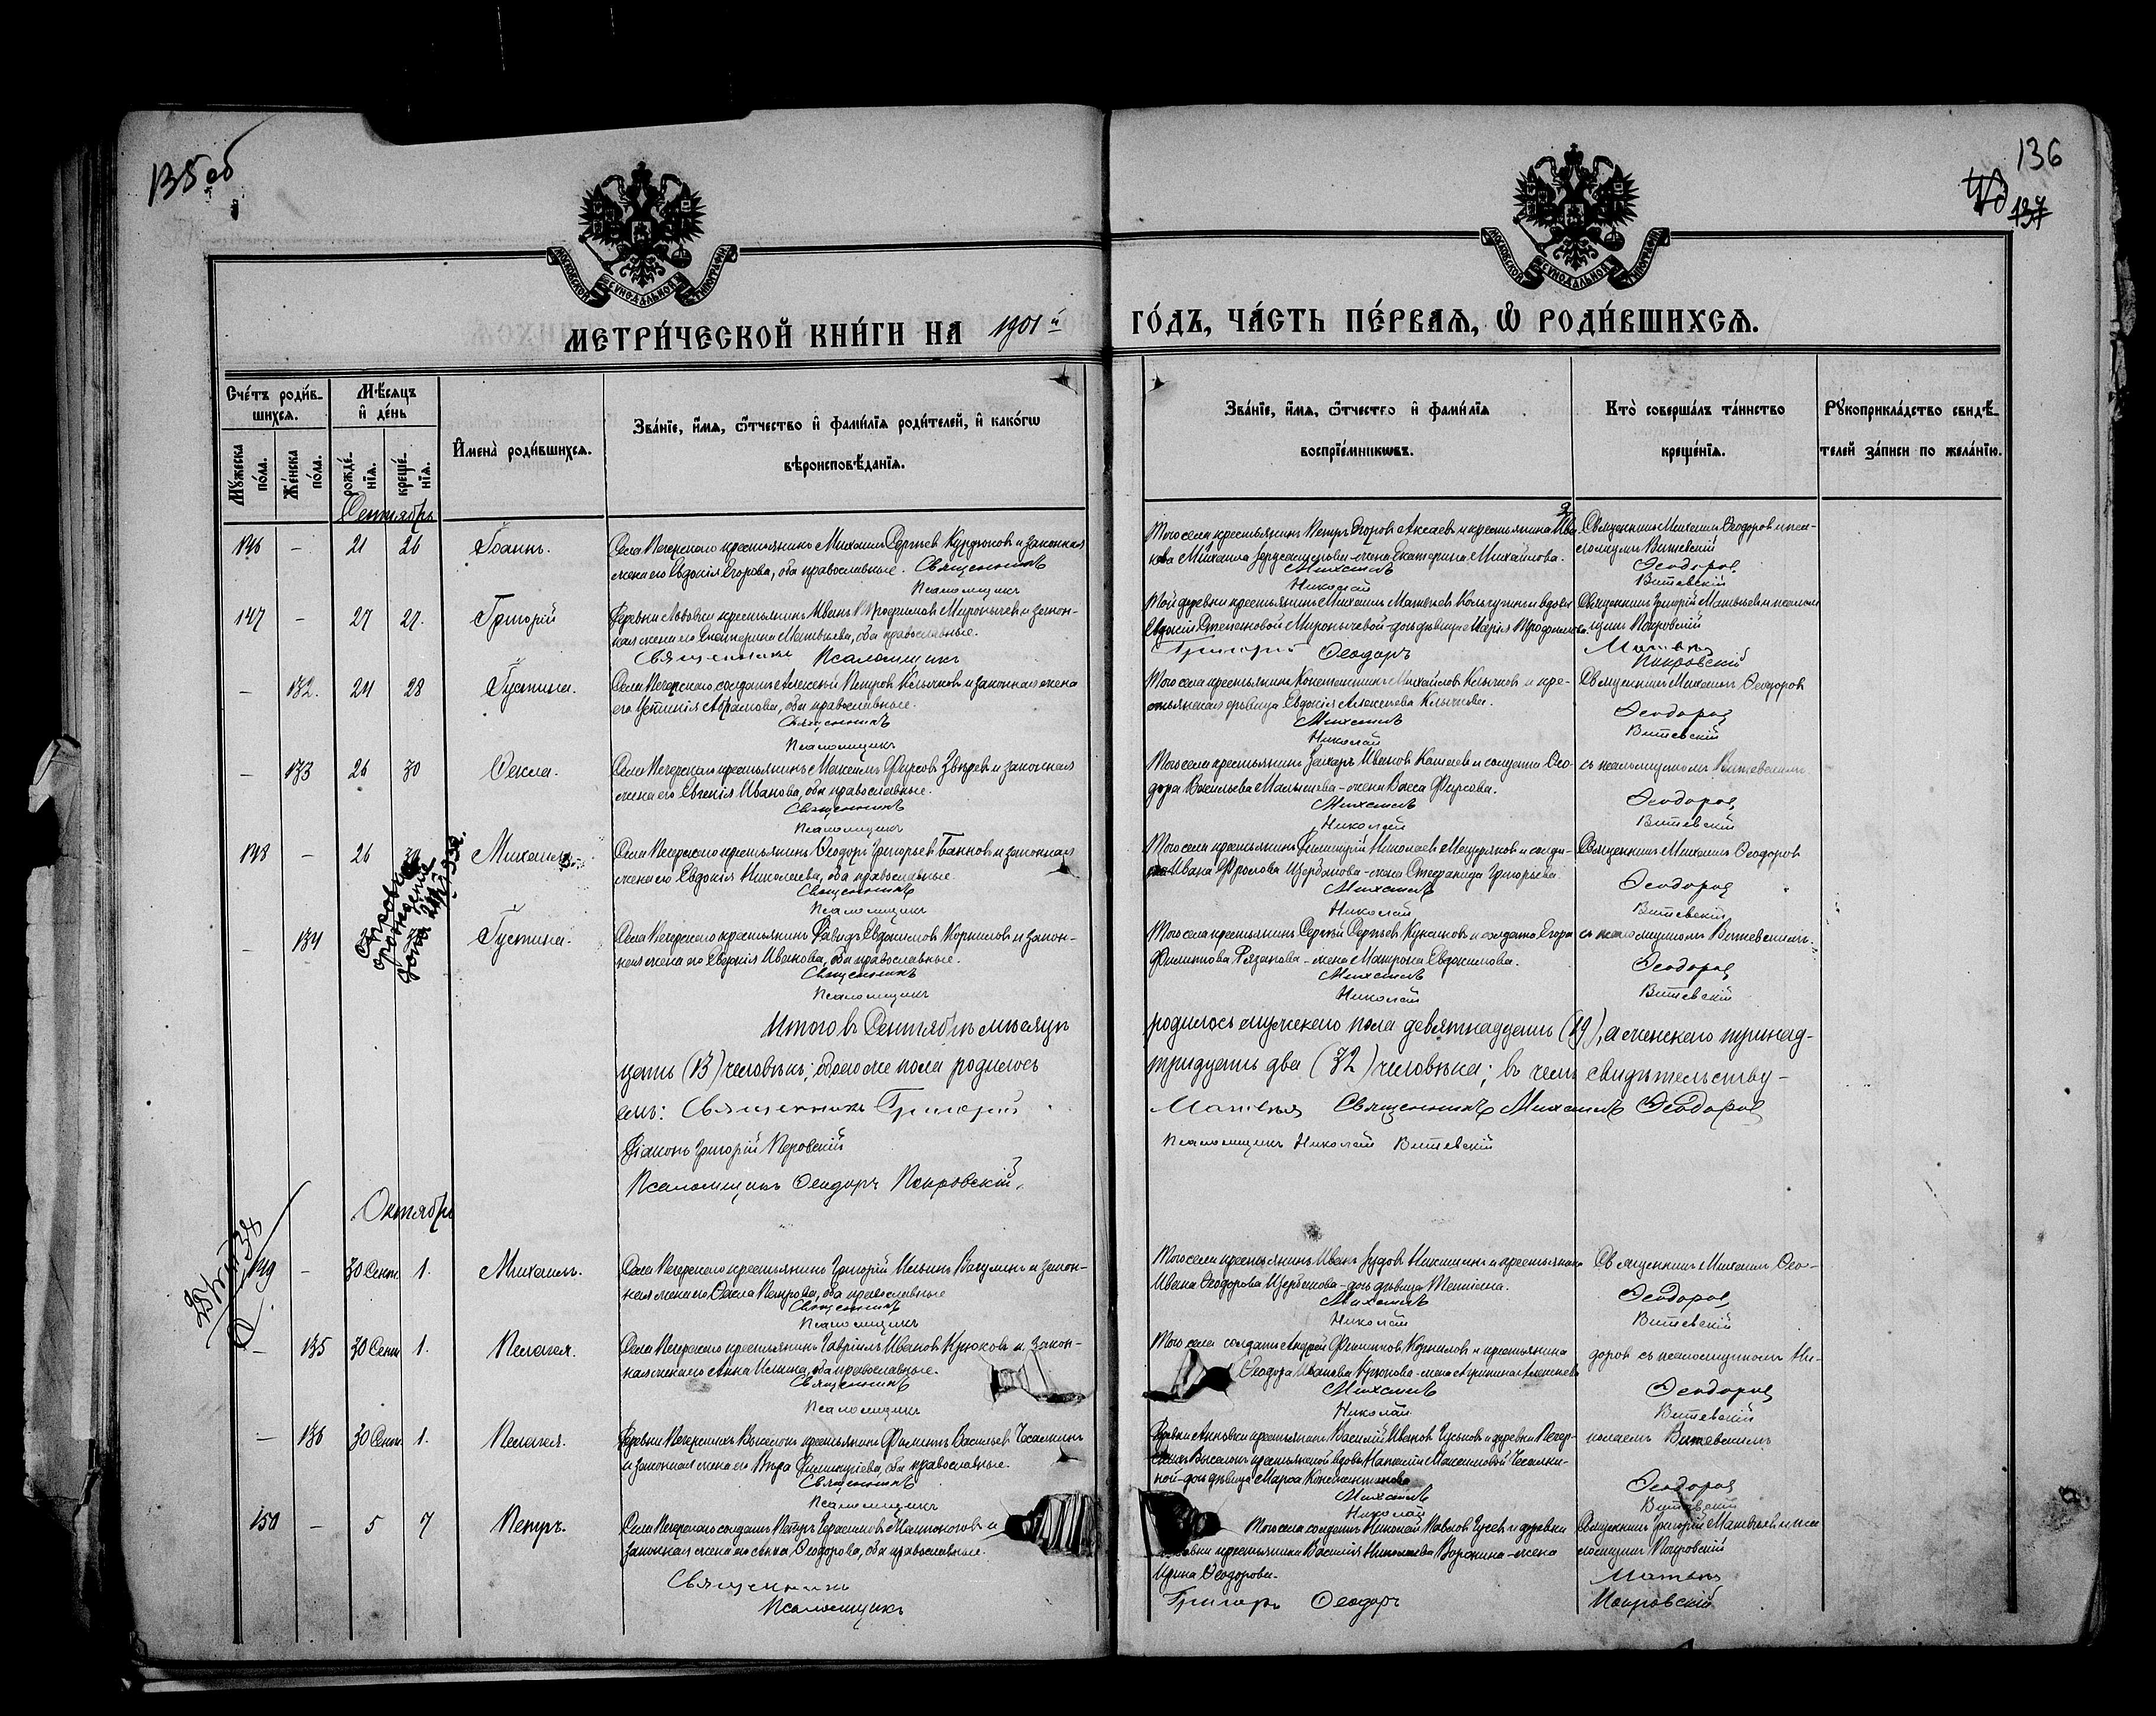 135 об
136
137
МОСКОВСКОЙ СУНОДАЛЬНОЙ ТИПОГРАФІИ
МОСКОВСКОЙ СУНОДАЛЬНОЙ ТИПОГРАФІИ
МЕТРИ́ЧЕСКОЙ КНИ́ГИ НА 1901 й
ГО́ДЪ, ЧА́СТЬ ПЕ́РВАѦ, Ѡ РОДИ́ВШИХСѦ.
Сче́тъ роди́в-
шихсѧ.
Мꙋ́жеска по́ла.
Же́нска по́ла.
Мѣ́сѧцъ и҆ де́нь
рожде́-нїѧ.
креще́-нїѧ.
И҆мена̀ роди́вшихсѧ.
Зва́нїе, и҆́мѧ, ѻ҆́тчество и҆ фами́лїѧ роди́телей, и҆ како́гѡ
вѣроисповѣ́данїѧ.
Зва́нїе, и҆́мѧ, ѻ҆́тчество и҆ фами́лїѧ
воспрїе́мникѡвъ.
Кто̀ соверша́лъ та́инство
креще́нїѧ.
Рꙋкоприкла́дство свидѣ́-
телей за́писи по жела́нїю.
Сентябрь
146 - 21 26 Іоаннъ.
Села Печерскаго крестьянинъ Михаилъ Сергѣевъ Курдюковъ и законная
жена его Евдокія Егорова, оба православные. Священникъ
Псаломщикъ
Того села крестьянинъ Петръ Егоровъ Аксаевъ и крестьянина
Михаила жена Екатерина Михайлова.
Михаилъ
Николай
Священникъ Михаилъ Ѳеодоровъ и пса-
ломщикъ Витевскій
Ѳеодоровъ
Витевскій
147 - 27 27. Григорій
Деревни Львовки крестьянинъ Иванъ Трофимовъ Миронычевъ и закон-
ная жена его Екатерина Матвѣева, оба православные.
Священникъ Псаломщикъ
Той деревни крестьянинъ Михаилъ Матвѣевъ Кольчугинъ и вдовы
Евдокіи Степановой Миронычевой - дочь дѣвица Марія Трофимова.
Григорій Ѳеодоръ
Священникъ Григорій Матвѣевъ и псалом-
щикъ Покровскій
Матвѣевъ
Покровскій
- 132. 24 28 Іустина.
Села Печерскаго солдатъ Алексѣй Петровъ Клычковъ и законная жена
его Устинія Абрамова, оба православные.
Священникъ
Псаломщикъ
Того села крестьянинъ Константинъ Михайловъ Клычковъ и кре-
стьянская дѣвица Евдокія Алексѣева Клычкова.
Михаилъ
Николай
Священникъ Михаилъ Ѳеодоровъ
Ѳеодоровъ
Витевскій
- 133 26 30 Ѳекла.
Села Печерскаго крестьянинъ Максимъ Фирсовъ Звѣревъ и законная
жена его Евгенія Иванова, оба православные.
Священникъ
Псаломщикъ
Того села крестьянинъ Захаръ Ивановъ Катаевъ и солдата Ѳео-
дора Васильева Малышева - жена Васса Фирсова.
Михаилъ
Николай
съ псаломщикомъ Витевскимъ
Ѳеодоровъ
Витевскій
148 - 26 30 Михаилъ
Села Печерскаго крестьянинъ Ѳеодоръ Григорьевъ Банновъ и законная
жена его Евдокія Николаева, оба православные.
Священникъ
Псаломщикъ
Того села крестьянинъ Димитрій Николаевъ Мещеряковъ и солда-
та Ивана Фролова Щербакова - жена Стефанида Григорьева
Михаилъ
Николай
Священникъ Михаилъ Ѳеодоровъ
Ѳеодоровъ
Витевскій
- 134 Іустина.
Села Печерскаго крестьянинъ Давидъ Евдокимовъ Корниловъ и закон-
ная жена его Евдокія Иванова, оба православные.
Священникъ
Псаломщикъ
Того села крестьянинъ Сергѣй Сергѣевъ и солдата Егора
Филиппова Рязанова - жена Матрона Евдокимова.
Михаилъ
Николай
съ псаломщикомъ Витевскимъ.
Ѳеодоровъ
Витевскій
Итого въ Сентябрѣ мѣсяцѣ
родилось мужескаго пола девятнадцать (19), а женскаго тринад-
цать (13) человѣкъ; обоего же пола родилось
тридцать два (32) человѣка; въ чемъ свидѣтельству-
емъ: Священникъ Григорій
Матвѣевъ Священникъ Михаилъ Ѳеодоровъ
Діаконъ Григорій Перовскій
Псаломщикъ Николай Витевскій
Псаломщикъ Ѳеодоръ Покровскій.
Октябрь
149 - 30 Сент. 1. Михаилъ.
Села Печерскаго крестьянинъ Григорій Ильинъ Вагулинъ и закон-
ная жена его Ѳекла Петрова, оба православные
Священникъ
Псаломщикъ
Того села крестьянинъ Иванъ Никишинъ и крестьянина
Ивана Ѳеодорова Щербакова - дочь дѣвица Татіана.
Михаилъ
Николай
Священникъ Михаилъ Ѳео-
Ѳеодоровъ
Витевскій
- 135 30 Сент 1. Пелагея.
Села Печерскаго крестьянинъ Гавріилъ Ивановъ Крюковъ и закон-
ная жена его Анна Ильина, оба православные.
Священникъ
Псаломщикъ
Того села солдатъ Андрей Филипповъ Корниловъ и крестьянина
Ѳеодора Иванова Крюкова - жена Агрипина Алексѣева
Михаилъ
Николай
доровъ съ псаломщикомъ Ни-
Ѳеодоровъ
Витевскій
- 136 30 Сент. 1. Пелагея.
Деревни Печерскихъ Выселокъ крестьянинъ Филиппъ Васильевъ Чесалкинъ
и законная жена его Вѣра Димитріева, оба православные.
Священникъ
Псаломщикъ
Деревни Анновки крестьянинъ Василій Ивановъ Гуськовъ и деревни Печер-
скихъ Выселокъ крестьянской вдовы Наталіи Максимовой Чесалки-
ной - дочь дѣвица Марѳа Константинова
Михаилъ
Николай
колаемъ Витевскимъ
Ѳеодоровъ
Витевскій
150 - 5 7 Петръ.
Села Печерскаго солдатъ Петръ Герасимовъ и
законная жена его Ѳекла Ѳеодорова, оба православные.
Священникъ
Псаломщикъ
Того села солдатъ Николай Павловъ Гусевъ и деревни
крестьянина Василія Николаева Воронина - жена
Ирина Ѳеодорова.
Григорій Ѳеодоръ
Священникъ Григорій Матвѣевъ и пса
ломщикъ Покровскій
Матвѣевъ
Покровскій